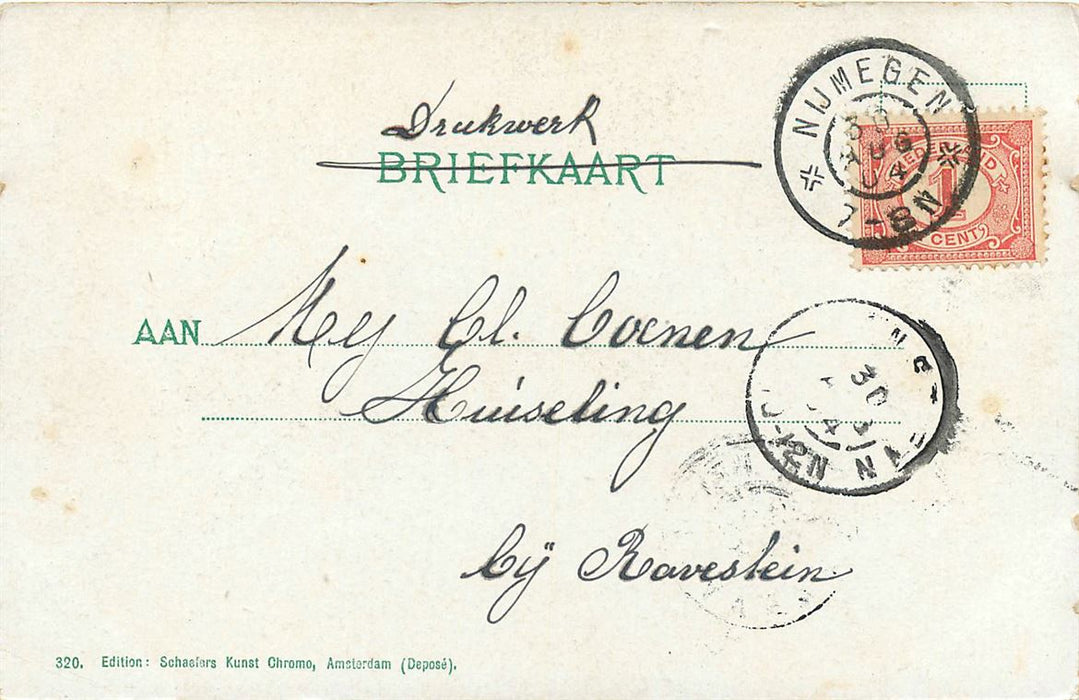 Drukwerk
BRIEFKAART
NIJMEGEN
30
AUG
04
7-8N
NEDERLAND
1
CENT
AAN Mej Cl. Coenen
Huiseling
30
04
12N
bij Ravestein
320. Edition: Schaefers Kunst Chromo, Amsterdam (Deposé).